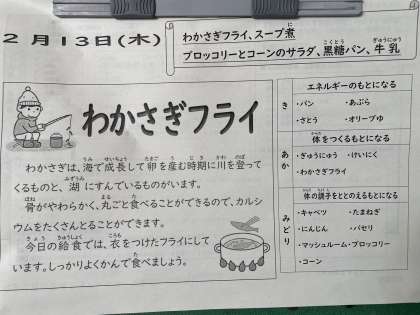 2月13日(木)
わかさぎフライ、スープ煮
ブロッコリーとコーンのサラダ、黒糖パン、牛乳
わかさぎフライ
わかさぎは、海で成長して卵を産む時期に川を登って
くるものと、湖にすんでいるものがいます。
骨がやわらかく、丸ごと食べることができるので、カルシ
ウムをたくさんとることができます。
今日の給食では、衣をつけたフライにして
います。しっかりよくかんで食べましょう。
エネルギーのもとになる
き
・パン ・あぶら
・さとう ・オリーブゆ
体をつくるもとになる
あか
・ぎゅうにゅう ・けいにく
・わかさぎフライ
体の調子をととのえるもとになる
みどり
・キャベツ ・たまねぎ
・にんじん ・パセリ
・マッシュルーム・ブロッコリー
・コーン